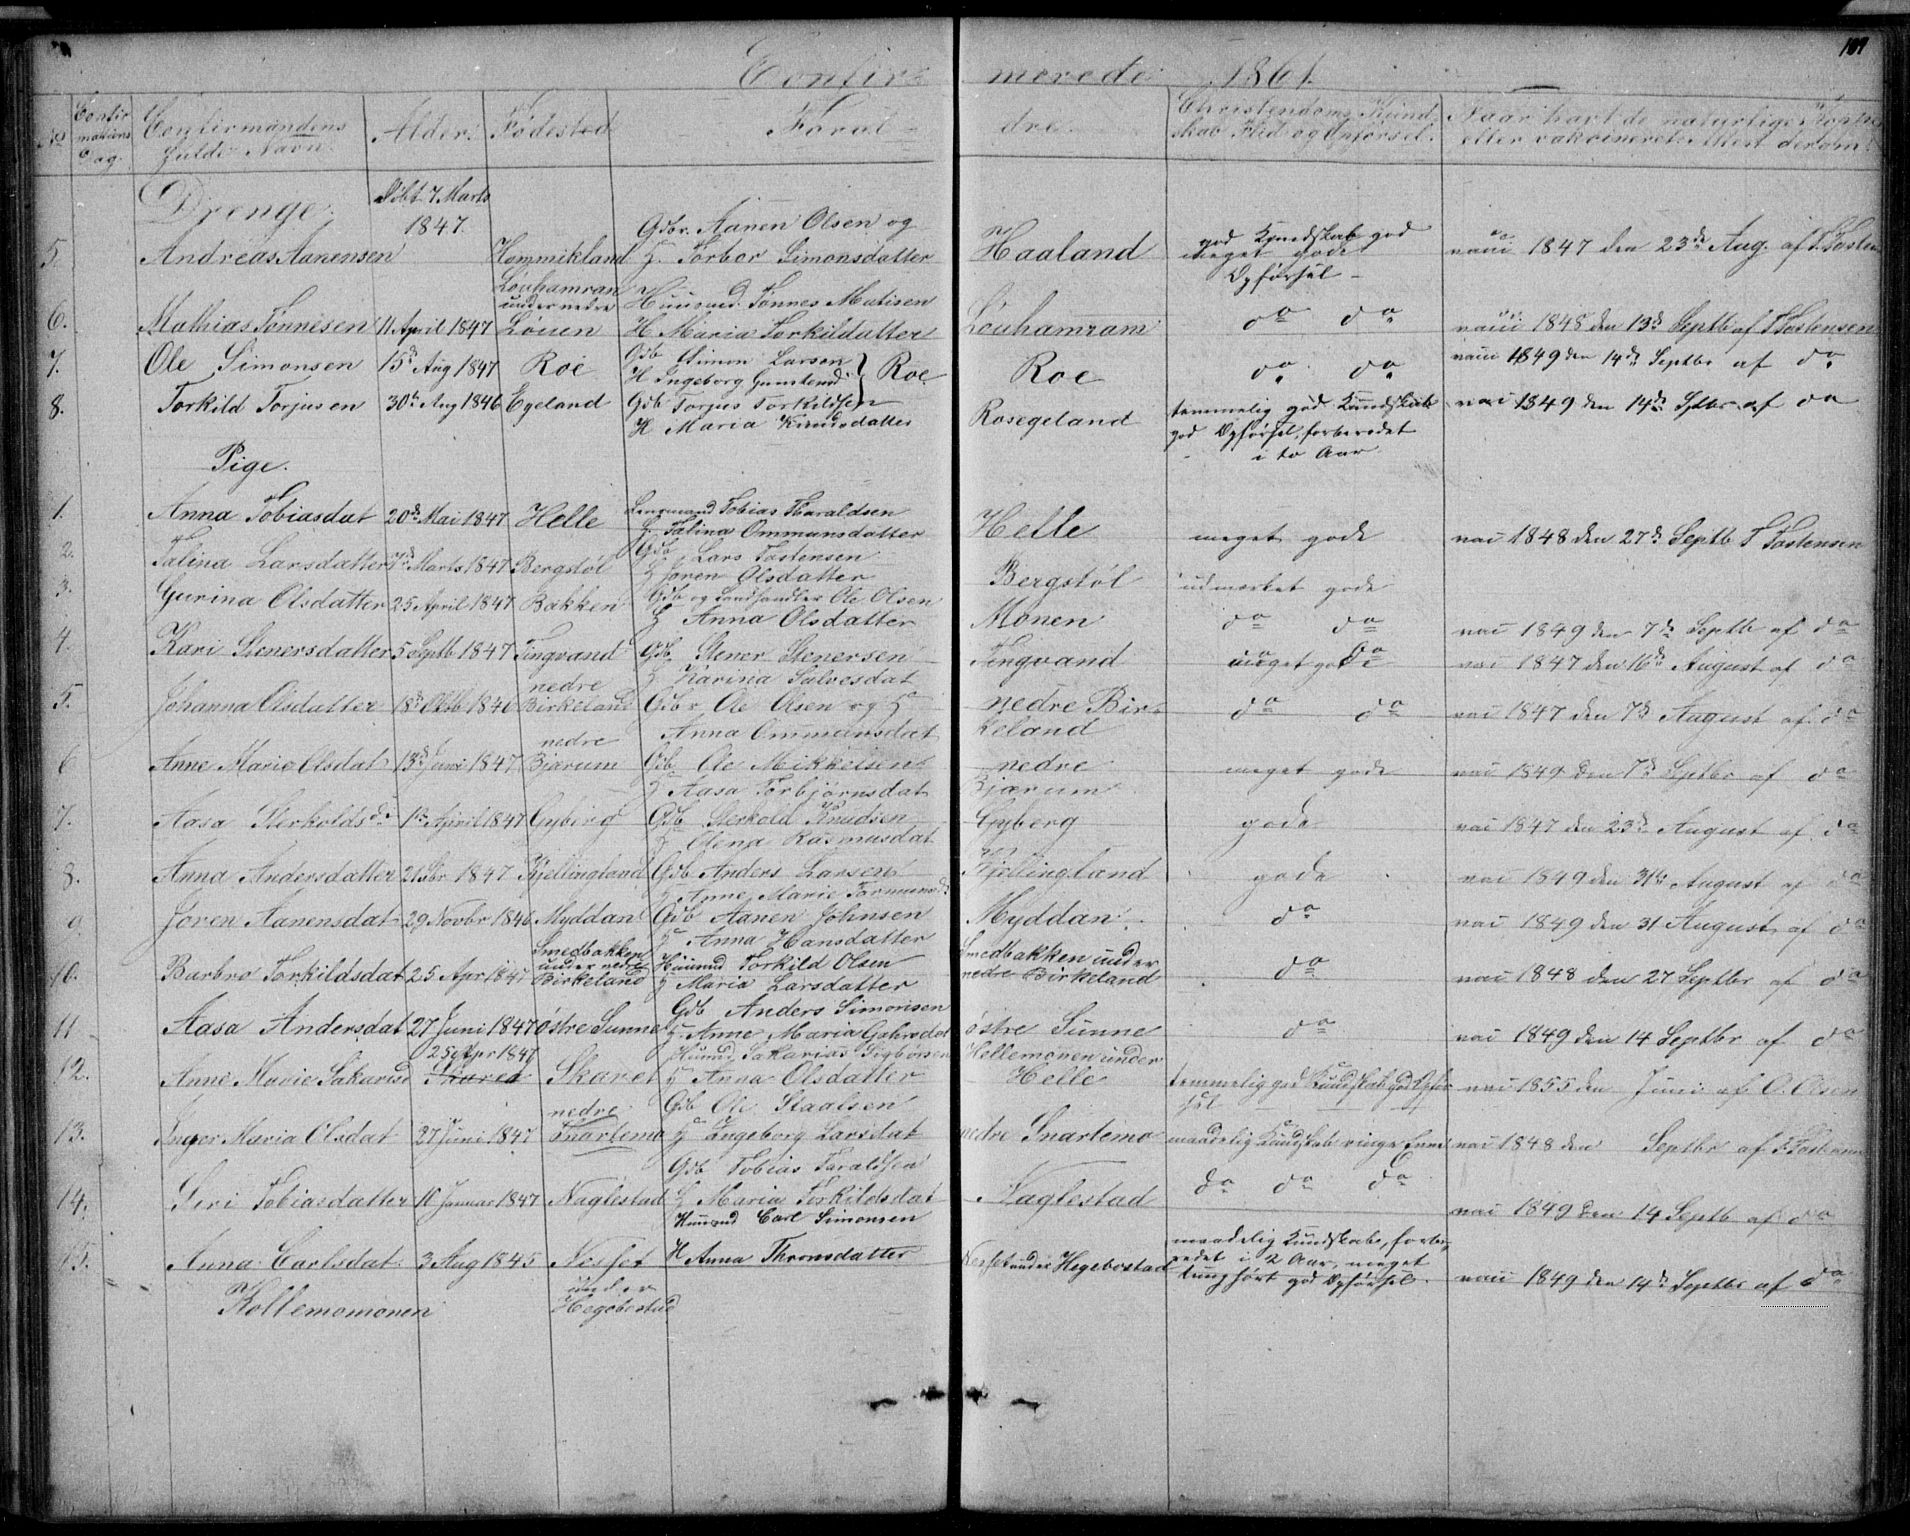 Confir= merede 1861.
No Confirmations Dag. Confirmandens fulde Navn. Alder. Fødested Foræl= dre. Christendoms Kundskab Flid og Opførsel. Naar havt de naturlige Kopper eller vakcineret. Attest derom.
Drenge. Døbt 7 Marts 1847.
5. Andreas Aanensen Hommikland Gdbr. Aanen Olsen og H. Torbor Simonsdatter Haaland god Kundskab god meget gode Opførsel vaci 1847 den 23de Aug. af T. Tosten
6. Mathias Tønnesen 11 April 1847 Løuhamran under nedre Løuen Huusmd. Tønnes Matisen H Maria Torkildatter Løuhamram do do vaci 1848 den 13d Septb af T Tostensen
7. Ole Simonsen 15d Aug 1847 Roe Gdb Simon Larsen H Ingeborg Roe Roe do do vaci 1849 den 14de Septbr af do
8. Torkild Torjusen 30te Aug 1846 Egeland Gdb Torjus Torkildsen H Maria Knudsdatter Rosegeland temmelig god Kundskab god Opførsel, forberedet i to Aar vaci 1849 den 14de Sptbr af do
Pige.
1. Anna Tobiasdat 20d Mai 1847 Helle Lensmand Tobias Tharaldsen H Talina Ommunsdatter Helle meget gode vaci 1848 den 27de Septb T Tostensen
2. Talina Larsdatter 7d Marts 1847 Bergstøl Gdb Lars Tostensen H Joren Olsdatter Bergstøl udmærket gode
3. Gurina Olsdatter 25 April 1847 Bakken Gdb og Landhandler Ole Olsen H Anna Olsdatter Monen do do vaci 1849 den 7de Septb af do
4. Kari Stenersdatter 5 Septb 1847 Tingvand Gdb Stener Stenersen H Karina Salvesdat Tingvand meget gode vaci 1847 den 16de August af do
5. Johanna Olsdatter 18d Oktb 1846 nedre Birkeland Gdbr Ole Olsen og H Anna Ommunsdat nedre Birkeland do do vaci 1847 den 7d August af do
6 Anne Marie Olsdat 13d Juni 1847 nedre Bjærum Gdb Ole Mikkelsen H Aasa Torbjørnsdat nedre Bjærum meget gode vaci 1849 den 7d Septbr af do
7. Aasa Sterkoldsd 1te April 1847 Gyberg Gdb Sterkold Knudsen H Olena Rasmusdat Gyberg gode vaci 1847 den 23d August af do
8. Anna Andersdatter 1847 Kjellingland Gdb Anders Larsen H Anne Marie Tormunsd Kjellingland gode vaci 1849 den 31te August af do
9 Joren Aanensdat 29 Novbr 1846 Myddan Gdb Aanen Johnsen H Anna Hansdatter Myddan. do vaci 1849 den 31 August af do
10. Barbro Torkildsdat 25 Apr 1847 Smedbakken under nedre Birkeland Huusmd Torkild Olsen H Maria Larsdatter Smedbakken under nedre Birkeland do vaci 1848 den 27 Septbr af do
11 Aasa Andersdat 27 Juni 1847 østre Sunne Gdb Anders Simonsen H Anne Maria østre Sunne do vaci 1849 den 14 Septbr af do
12. Anne Marie Sakarisd 25 Apr 1847 Skaret Skaret Huusmd Sakarias Sigbørsen H Anna Olsdatter Hellemonen under Helle temmelig god Kundskab god Opførsel vaci 1855 den Juni af O. Olsen
13. Inger Maria Olsdat 27 Juni 1847 nedre Snartemo Gdb Ole Staalsen H Ingeborg Larsdat nedre Snartemo maadelig Kundskab ringe Evne vaci 1848 den Septbr af T Tostensen
14. Siri Tobiasdatter 10 Januar 1847 Naglestad Gdb Tobias Taraldsen H Maria Torkildsdat Naglestad do do do vaci 1849 den 14 Septb af do
15. Anna Carlsdat 3 Aug 1845 Nesset under Hegebostad Huusmd Carl Simonsen H Anna Thronsdatter Nesset under Hegebostad maadelig Kundskab, forberedet i 2 Aar, meget tunghørt god Opførsel. vaci 1849 den 14d Septbr af do
Kollemomonen